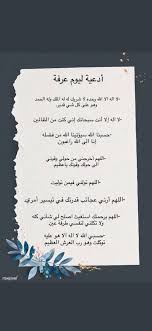 أدعية ليوم عرفة
-لا اله الا الله وحده لا شريك له له الملك وله الحمد
وهو على كل شي قدير
-لا اله إلا أنت سبحانك إني كنت من الظالمين
-حسبنا الله سيؤتينا الله من فضله
إنا الى الله راغبون
-اللهم أخرجني من حولي وقوتي
الى حولك وقوتك
-اللهم تولني فيمن توليت
-اللهم أرني عجائب قدرتك في تيسير أمري
-اللهم برحمتك استغيث اصلح لي شأني كله
ولا تكلني لنفسي طرفة عين
-حسبي الله لا اله الا هو عليه
توكلت وهو رب العرش العظيم